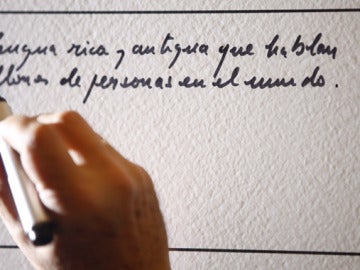 lengua rica y antigua que hablan
millones de personas en el mundo.